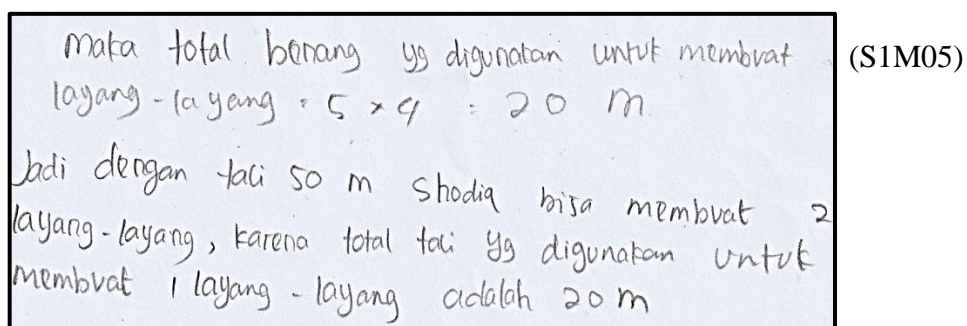 maka total benang yg digunakan untuk membuat
layang-layang = 5 x 4 = 20 m
(S1M05)
Jadi dengan tali 50 m Shodiq bisa membuat 2
layang-layang, karena total tali yg digunakan untuk
membuat 1 layang-layang adalah 20 m